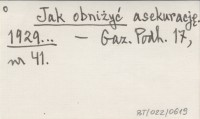 Jak obniżyć asekurację.
1929... — Gaz. Podh. 17,
nr 41.
BJ/022/0619